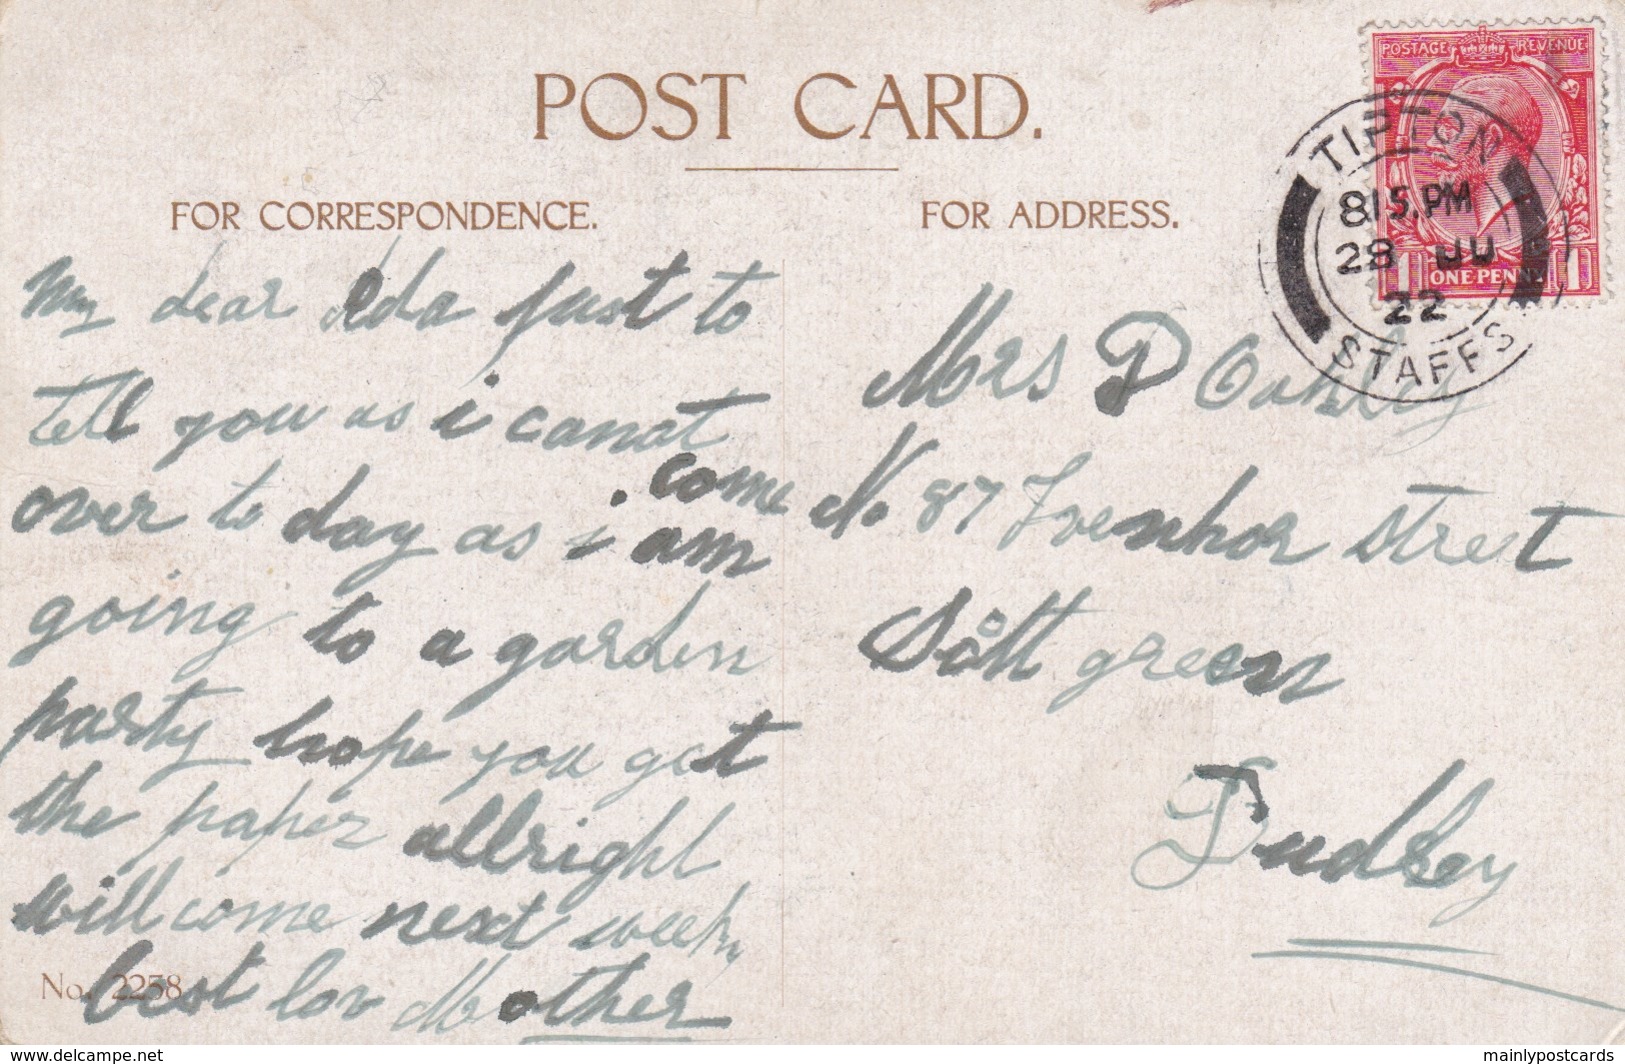 POST CARD.
FOR CORRESPONDENCE.
my dear Ida just to
tell you as i canot
come
over to day as i am
going to a garden
party hope you got
the paper allright
will come next week
best lov Mother
No. 2258
FOR ADDRESS.
Mrs D Oakley
No 87 Ivenhor street
green
Dudley
POSTAGE REVENUE
1 ONE PENNY 1
TIPTON
8 15. PM
28 JU
22
STAFFS
www.delcampe.net
mainlypostcards